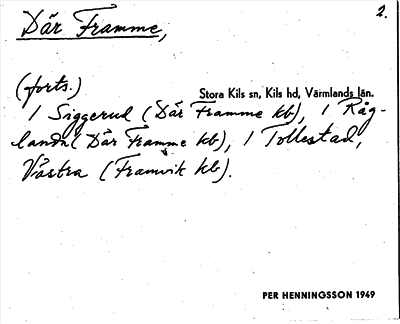 Där Framme,
2.
(forts.)
Stora Kils sn, Kils hd, Värmlands län.
1 Siggerud (Där Framme kb), 1 Råg-
landa (Där Framme kb), 1 Tollestad,
Västra (Framvik kb).
PER HENNINGSSON 1949